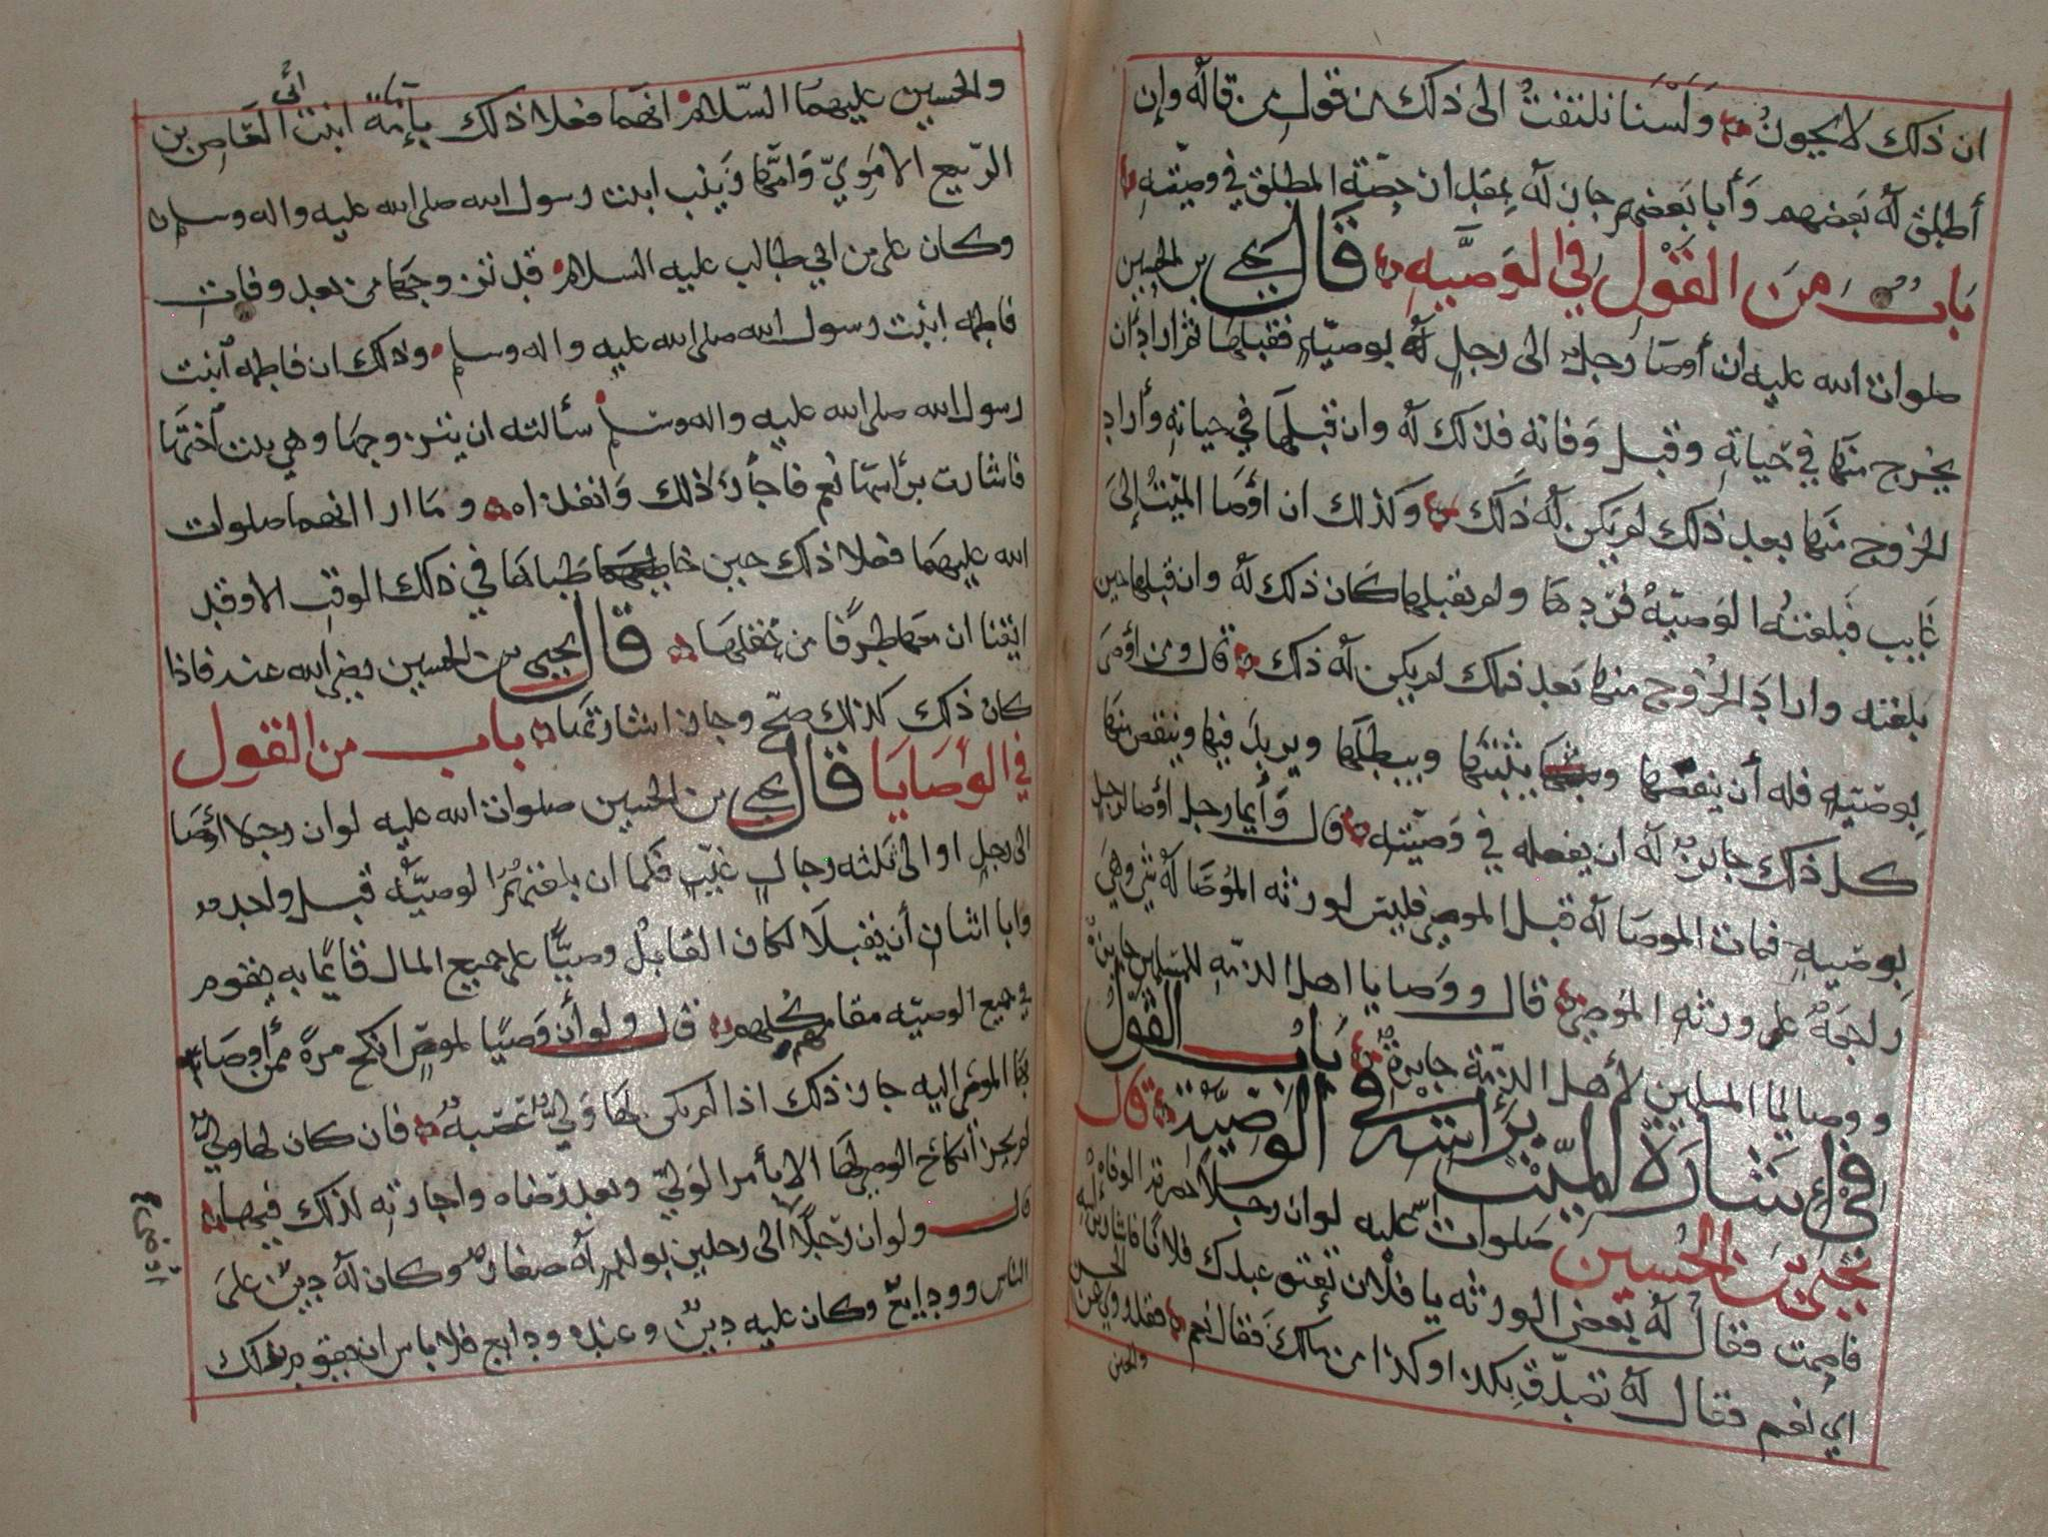 ان ذلك لا يجوز ولسنا نلتفت الى ذلك من قول من قاله وان
أطلق له بعضهم وأبا بعضهم جاز له بقدر حصة المطلق في وصيته
باب من القول في الوصيه قال يحيى بن الحسين
صلوات الله عليه ان أوصا رجل الى رجل له بوصيه فقبلها ثم اراد ان
يخرج منها في حياته وقبل وفاته فذلك له وان قبلها في حياته وأراد
الخروج منها بعد ذلك لم يكن له ذلك وكذلك ان أوصا الميت إلى
غايب فبلغته الوصيه فردها ولم يقبلها كان ذلك له وان قبلها حين
بلغته واراد الخروج منها بعد ذلك لم يكن له ذلك قال ومن أوصى
بوصيه فله أن ينقضها يثبتها ويبطلها ويزيد فيها وينقص منها
كل ذلك جايز له ان يفعله في وصيته قال وأيما رجل أوصا لرجل
بوصيه فمات الموصا له قبل الموصي فليس لورثه الموصا له شي وهي
راجعة على ورثه الموصي قال ووصايا اهل الذمه للمسلمين جايزة
ووصايا المسلمين لأهل الذمة جايزة باب القول
في اشارة الميت برأسه في الوصية قال
يحيى بن الحسين صلوات الله عليه لو ان رجلا حضرته الوفاة
فاصمت فقال له بعض الورثه يا فلان تعتق عبدك فلانا فاشار برأسه
اي نعم فقال له تصدق بكذا وكذا من مالك فقال نعم فقد روي عن الحسن
والحسين
والحسين عليهما السلام انهما فعلا ذلك بإمامة ابنت أبي العاص بن
الربيع الاموي وامها زينب ابنت رسول الله صلى الله عليه واله وسلم
وكان علي بن ابي طالب عليه السلام قد تزوجها من بعد وفات
فاطمه ابنت رسول الله صلى الله عليه واله وسلم وذلك ان فاطمه ابنت
رسول الله صلى الله عليه واله وسلم سألته ان يتزوجها وهي بنت اختها
فاشارت برأسها نعم فاجازا ذلك وانفذاه وما ارا انهما صلوات
الله عليهما فعلا ذلك حين خاطباها في ذلك الوقت الا وقد
ايقنا ان معها طرفا من عقلها قال يحيى بن الحسين رضي الله عنه فاذا
كان ذلك كذلك صح وجاز اشارتها باب من القول
في الوصايا قال يحيى بن الحسين صلوات الله عليه لو ان رجلا أوصا
الى رجل او الى ثلثه رجال غيب فلما ان بلغتهم الوصيه قبل واحد
وابا اثنان أن يقبلا لكان القابل وصيا على جميع المال قايما به يقوم
في جميع الوصيه مقامهم كلهم قال ولو أن وصيا لموص انكح مرة ممن أوصا
بها الموصي اليه جاز ذلك اذا لم يكن لها ولي عصبه فان كان لها ولي
لم يجز انكاح الوصي لها الا بأمر الولي وبعد رضاه واجازته لذلك فيها
قال ولو ان رجلا الى رجلين بولد له صغار وكان له دين على
أوصا صح
الناس وودايع وكان عليه دين وعنده ودايع فلا باس ان يقوم بذلك